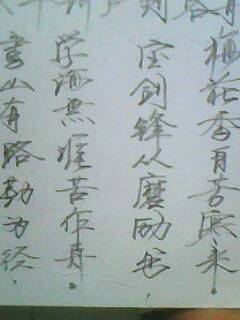 書山有路勤为径，
学海無涯苦作舟。
宝剑锋从磨励出，
梅花香自苦寒来。